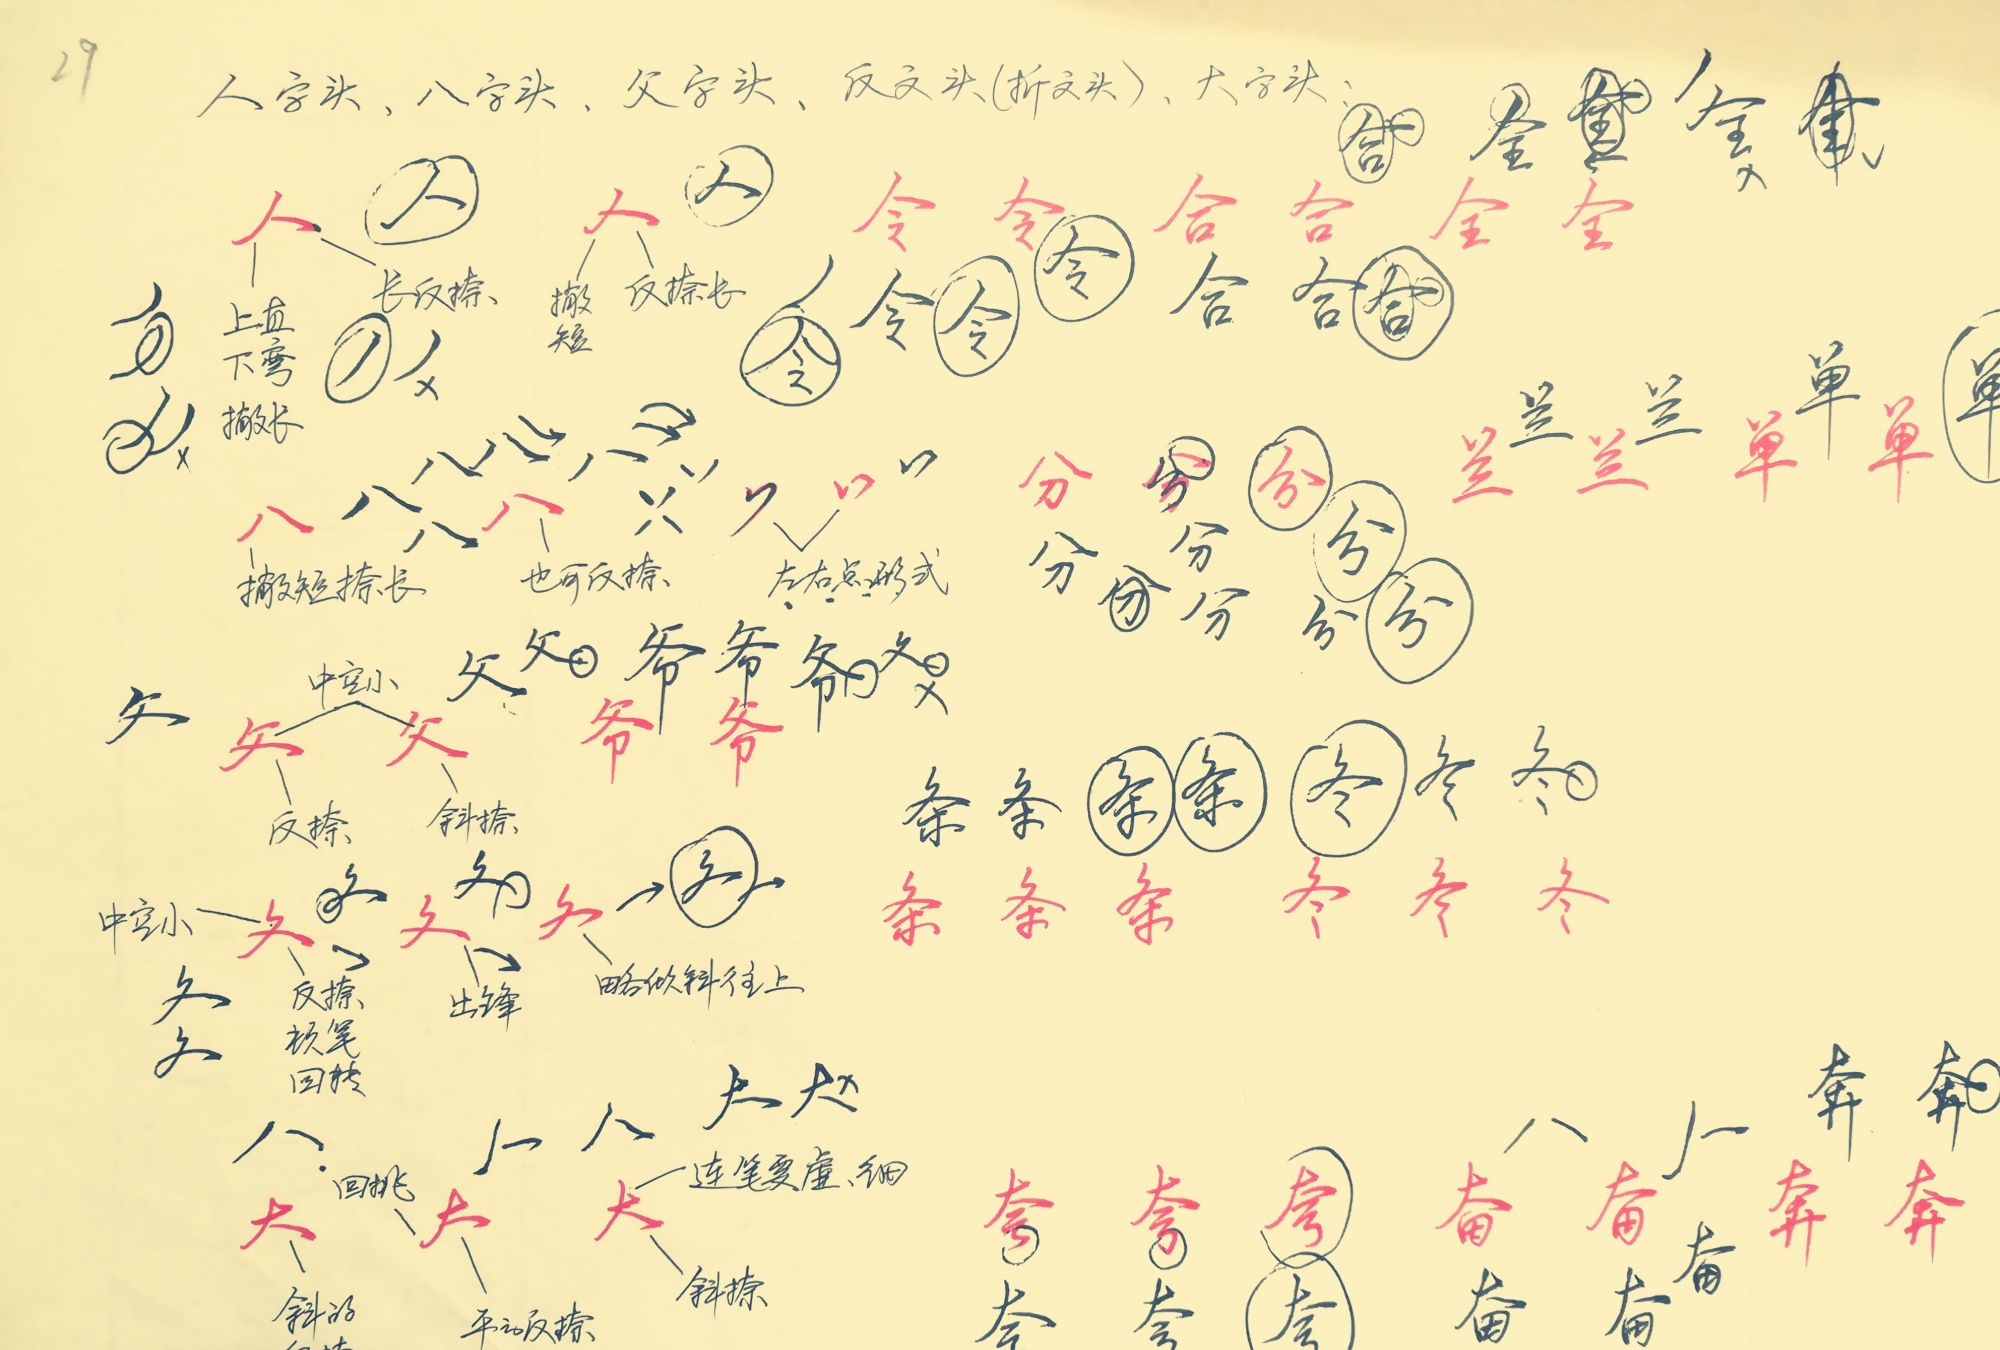 29
人字头、八字头、父字头、反文头(折文头)、大字头:
合 全 全 全
人 人 人 人 令 令 合 合 全 全
长反捺、 撇短 反捺长
上直下弯
撇长
令 令 令 令 合 合 合
兰 兰 单 单
八 八 八 八 八 八 八
分 分 分 兰 兰 单 单
撇短捺长 也可反捺、 左右点形式
分 分 分
份 分 分 分
中空小
父 父 爷 爷 爷
父 父 爷 爷
反捺、 斜捺、
条 条 条 条 冬 冬 冬
条 条 条 冬 冬 冬
中空小
反捺、
顿笔
回转
出锋
略倾斜往上
大 大
奔 奔
八 八 八
回挑 连笔要虚、细
大 大 大 夸 夸 夸 奋 奋 奔 奔
奋
斜的 斜捺、
平的反捺、
夸 夸 夸 奋 奋